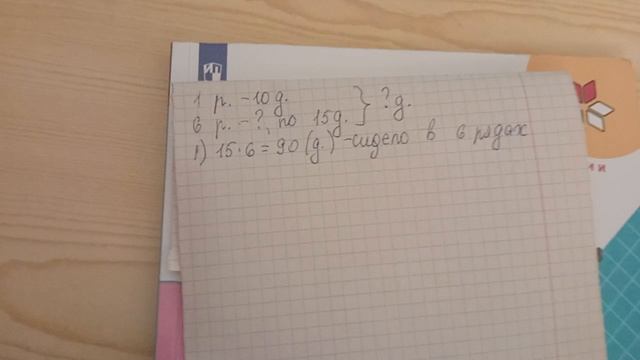 1 р. – 10 д.
6 р. – ?, по 15 д. } ? д.
1) 15 · 6 = 90 (д.) – сидело в 6 рядах